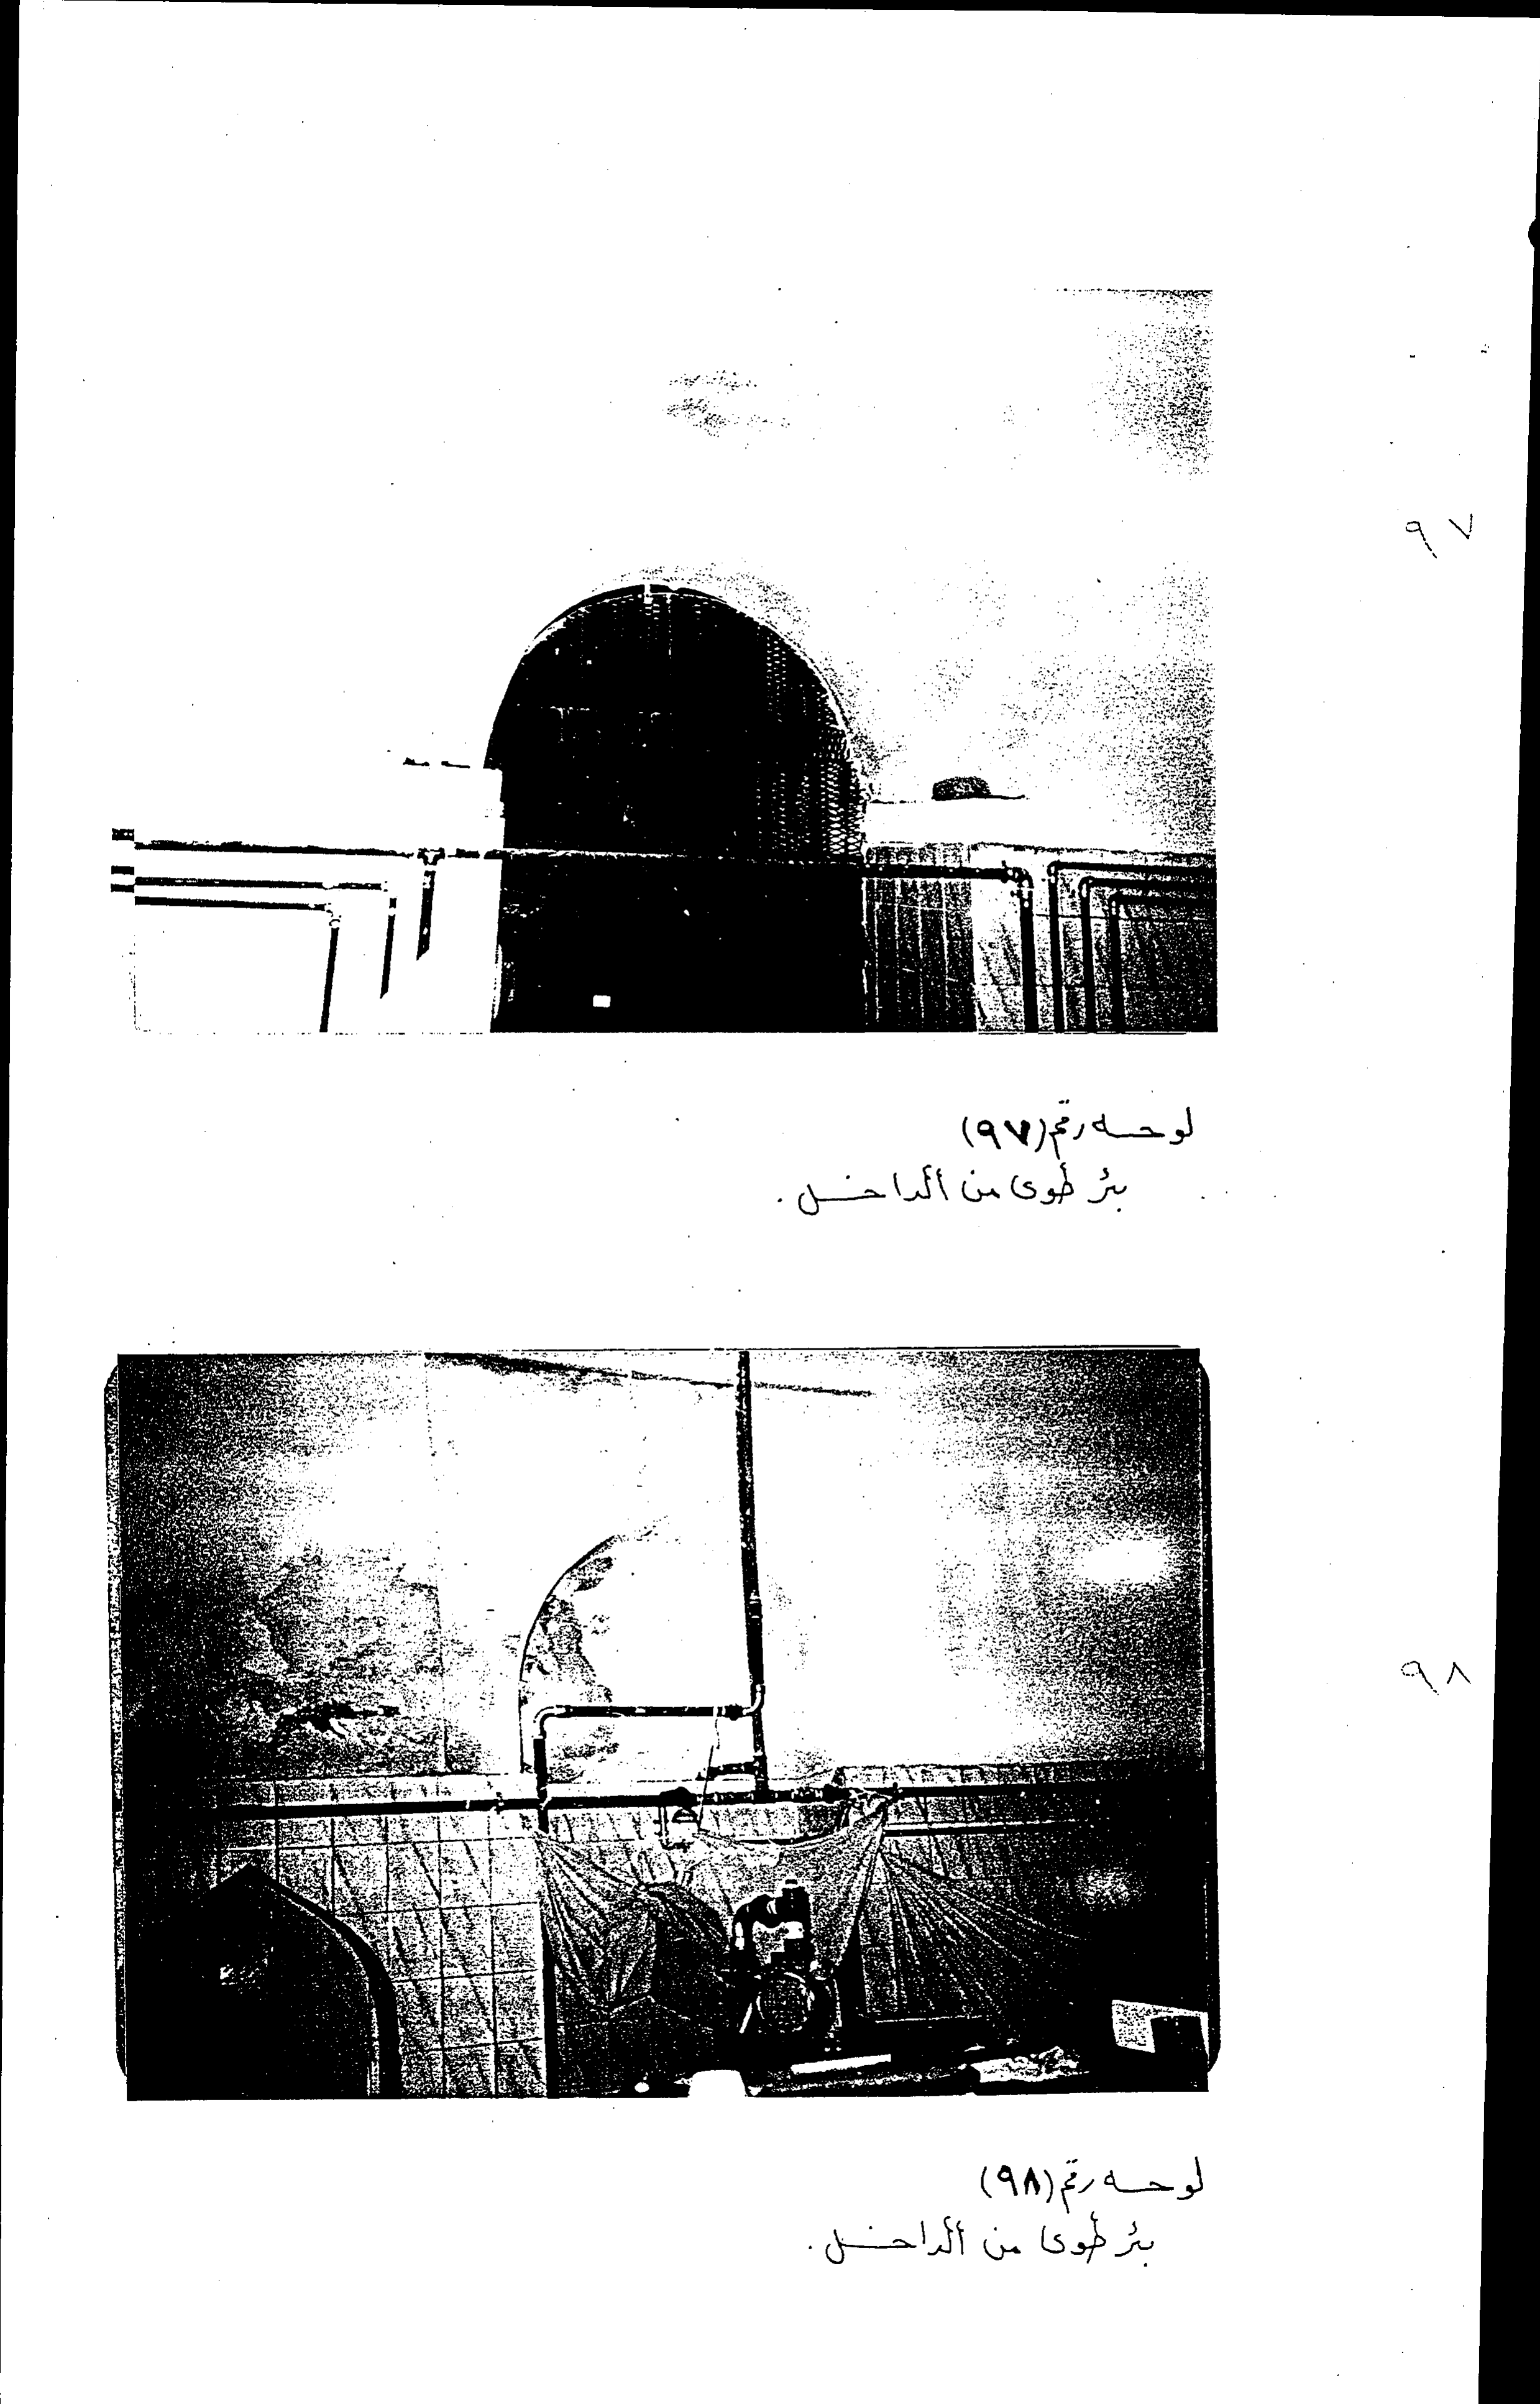 ٩٧
لوحه رقم (٩٧)
بئر طوى من الداخل .
٩٨
لوحه رقم (٩٨)
بئر طوى من الداخل .